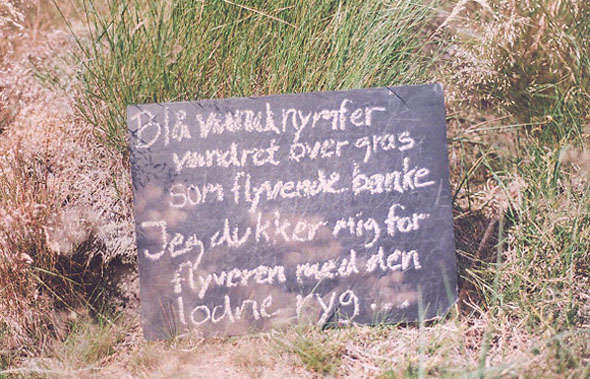 Blå vandnymfer
vandret over græs
som flyvende banke
Jeg dukker mig for
flyveren med den
lodne ryg ...